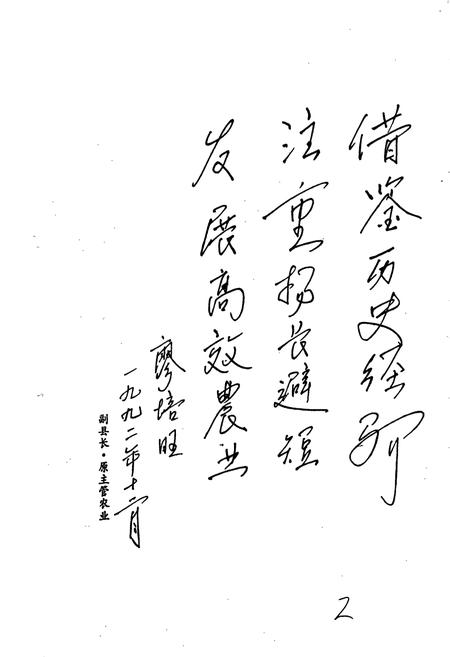 借鉴历史经验
注重扬长避短
发展高效農业
廖培旺
一九九二年十二月
副县长·原主管农业
2